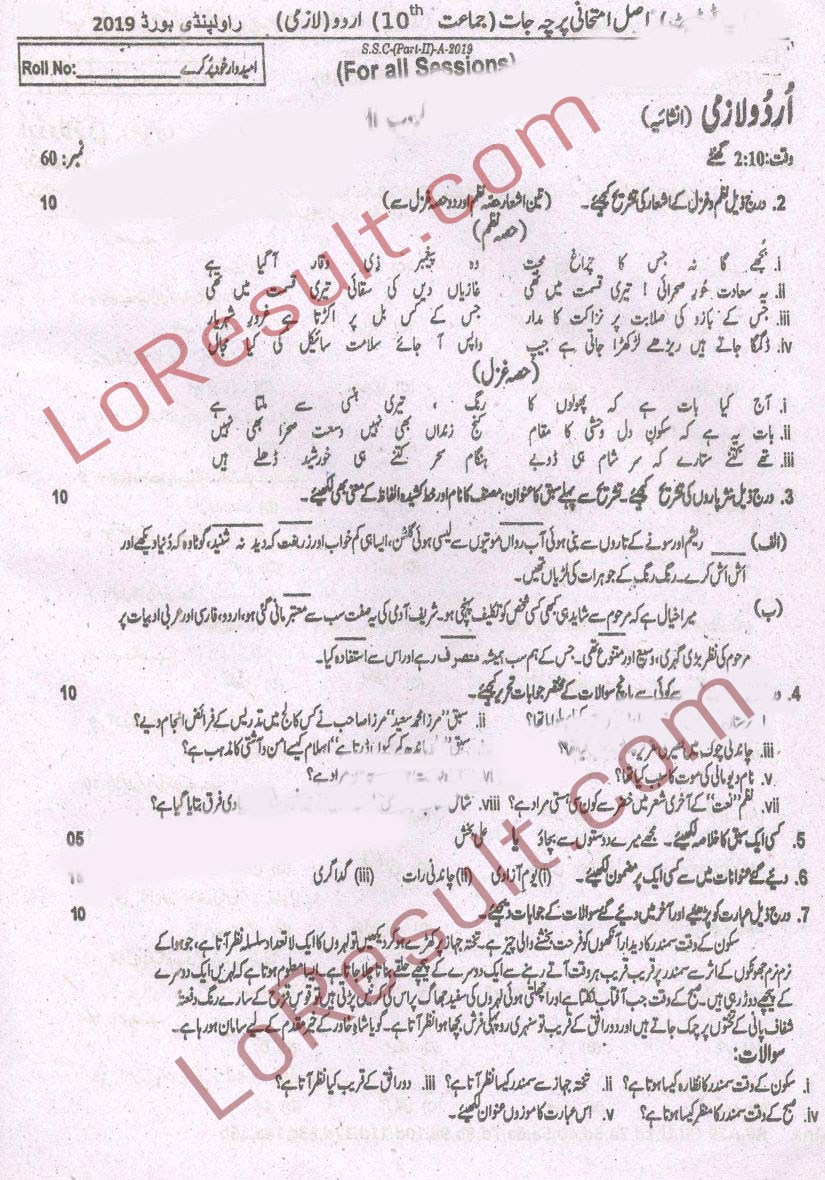 اصل امتحانی پرچہ جات (جماعت 10th) اردو (لازمی) راولپنڈی بورڈ 2019
S.S.C-(Part-II)-A-2019
Roll No: امیدوار خود پُر کرے
(For all Sessions)
اُردو لازمی (انشائیہ)
وقت: 2:10 گھنٹے نمبر: 60
2. درج ذیل نظم و غزل کے اشعار کی تشریح کیجیے۔ (تین اشعار حصہ نظم اور دو حصہ غزل سے) 10
(حصہ نظم)
i. بجھے گا نہ جس کا چراغ محبت وہ پیغمبر ذی وقار آگیا ہے
ii. یہ سعادت حور صحرائی ! تیری قسمت میں تھی غازیاں دیں کی سقائی تیری قسمت میں تھی
iii. جس کے بازو کی صلابت پر نزاکت کا مدار جس کے کس بل پر اکڑتا ہے غرورِ شہریار
iv. ڈگمگا جاتے ہیں ریڑھے لڑکھڑا جاتی ہے جیپ واپس آ جائے سلامت سائیکل کی کیا مجال
(حصہ غزل)
i. آج کیا بات ہے کہ پھولوں کا رنگ ، تیری ہنسی سے ملتا ہے
ii. بات یہ ہے کہ سکون دل وحشی کا مقام کنج زنداں بھی نہیں وسعت صحرا بھی نہیں
iii. تھے کتنے ستارے کہ سر شام ہی ڈوبے ہنگام سحر کتنے ہی خورشید ڈھلے ہیں
3. درج ذیل نثر پاروں کی تشریح کیجیے۔ تشریح سے پہلے سبق کا عنوان، مصنف کا نام اور خط کشیدہ الفاظ کے معنی بھی لکھیے۔ 10
(الف) ریشم اور سونے کے تاروں سے بنی ہوئی آب رواں موتیوں سے لیسی ہوئی گلشن، ایسا ہی کم خواب اور زربفت کہ دید نہ شنید، گوٹا وہ کہ دُنیا دیکھے اور
اش اش کرے۔ رنگ رنگ کے جوہرات کی لڑیاں تھیں۔
(ب) میرا خیال ہے کہ مرحوم سے شاید ہی کبھی کسی شخص کو تکلیف پہنچی ہو۔ شریف آدمی کی یہ صفت سب سے معتبر مانی گئی ہو، اردو، فارسی اور عربی ادبیات پر
مرحوم کی نظر بڑی گہری، وسیع اور متنوع تھی۔ جس کے ہم سب ہمیشہ متصرف رہے اور اس سے استفادہ کیا۔
4. سے کوئی سے پانچ سوالات کے مختصر جوابات تحریر کیجیے۔ 10
ii. سبق "مرزا محمد سعید" مرزا صاحب نے کس کالج میں تدریس کے فرائض انجام دیے؟
iii. چاندنی چوک میں اسلام کیسے امن و آشتی کا مذہب ہے؟
v. نام دیو مالی کی موت کا سبب کیا تھا؟ iv
vii. نظم "نعت" کے آخری شعر میں خضر سے کون سی ہستی مراد ہے؟ viii. فرق بتایا گیا ہے؟
5. کسی ایک سبق کا خلاصہ لکھیے۔ مجھے میرے دوستوں سے بچاؤ یا علی بخش 05
6. دیے گئے عنوانات میں سے کسی ایک پر مضمون لکھیے۔ (i) یوم آزادی (ii) چاندنی رات (iii) گداگری
7. درج ذیل عبارت کو پڑھئے اور آخر میں دیے گئے سوالات کے جوابات دیجیے۔ 10
سکون کے وقت سمندر کا دیدار آنکھوں کو فرحت بخشنے والی چیز ہے۔ تختہ جہاز پر کھڑے ہو کر دیکھیں تو لہروں کا ایک لا تعداد سلسلہ نظر آتا ہے، جو ہوا کے
نرم نرم جھونکوں کے اثر سے سمندر پر قریب قریب ہر وقت آتے رہنے سے ایک دوسرے کے پیچھے حلقے بناتا چلا جاتا ہے۔ ایسا معلوم ہوتا ہے کہ لہریں ایک دوسرے
کے پیچھے دوڑ رہی ہیں۔ صبح کے وقت جب آفتاب نکلتا ہے اور اچھلتی ہوئی لہروں کی سفید جھاگ پر اس کی کرنیں پڑتی ہیں تو قوس قزح کے سارے رنگ دفعتہً
شفاف پانی کے تختوں پر چمک جاتے ہیں اور دور افق کے قریب تو سنہری روپہلی فرش بچھا ہوا نظر آتا ہے۔ گویا شاہِ خاور کے خیر مقدم کے لیے سامان ہو رہا ہے۔
سوالات:
i. سکون کے وقت سمندر کا نظارہ کیسا ہوتا ہے؟ ii. تختہ جہاز سے سمندر کیسا نظر آتا ہے؟ iii. دور افق کے قریب کیا نظر آتا ہے؟
iv. صبح کے وقت سمندر کا منظر کیسا ہوتا ہے؟ v. اس عبارت کا موزوں عنوان لکھیے۔
LoResult.com
LoResult.com